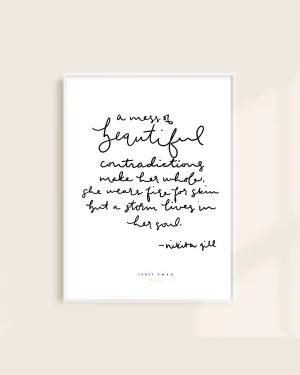 a mess of
beautiful
contradictions
make her whole,
she wears fire for skin
but a storm lives in
her soul.
—nikita gill
JANET OWEN